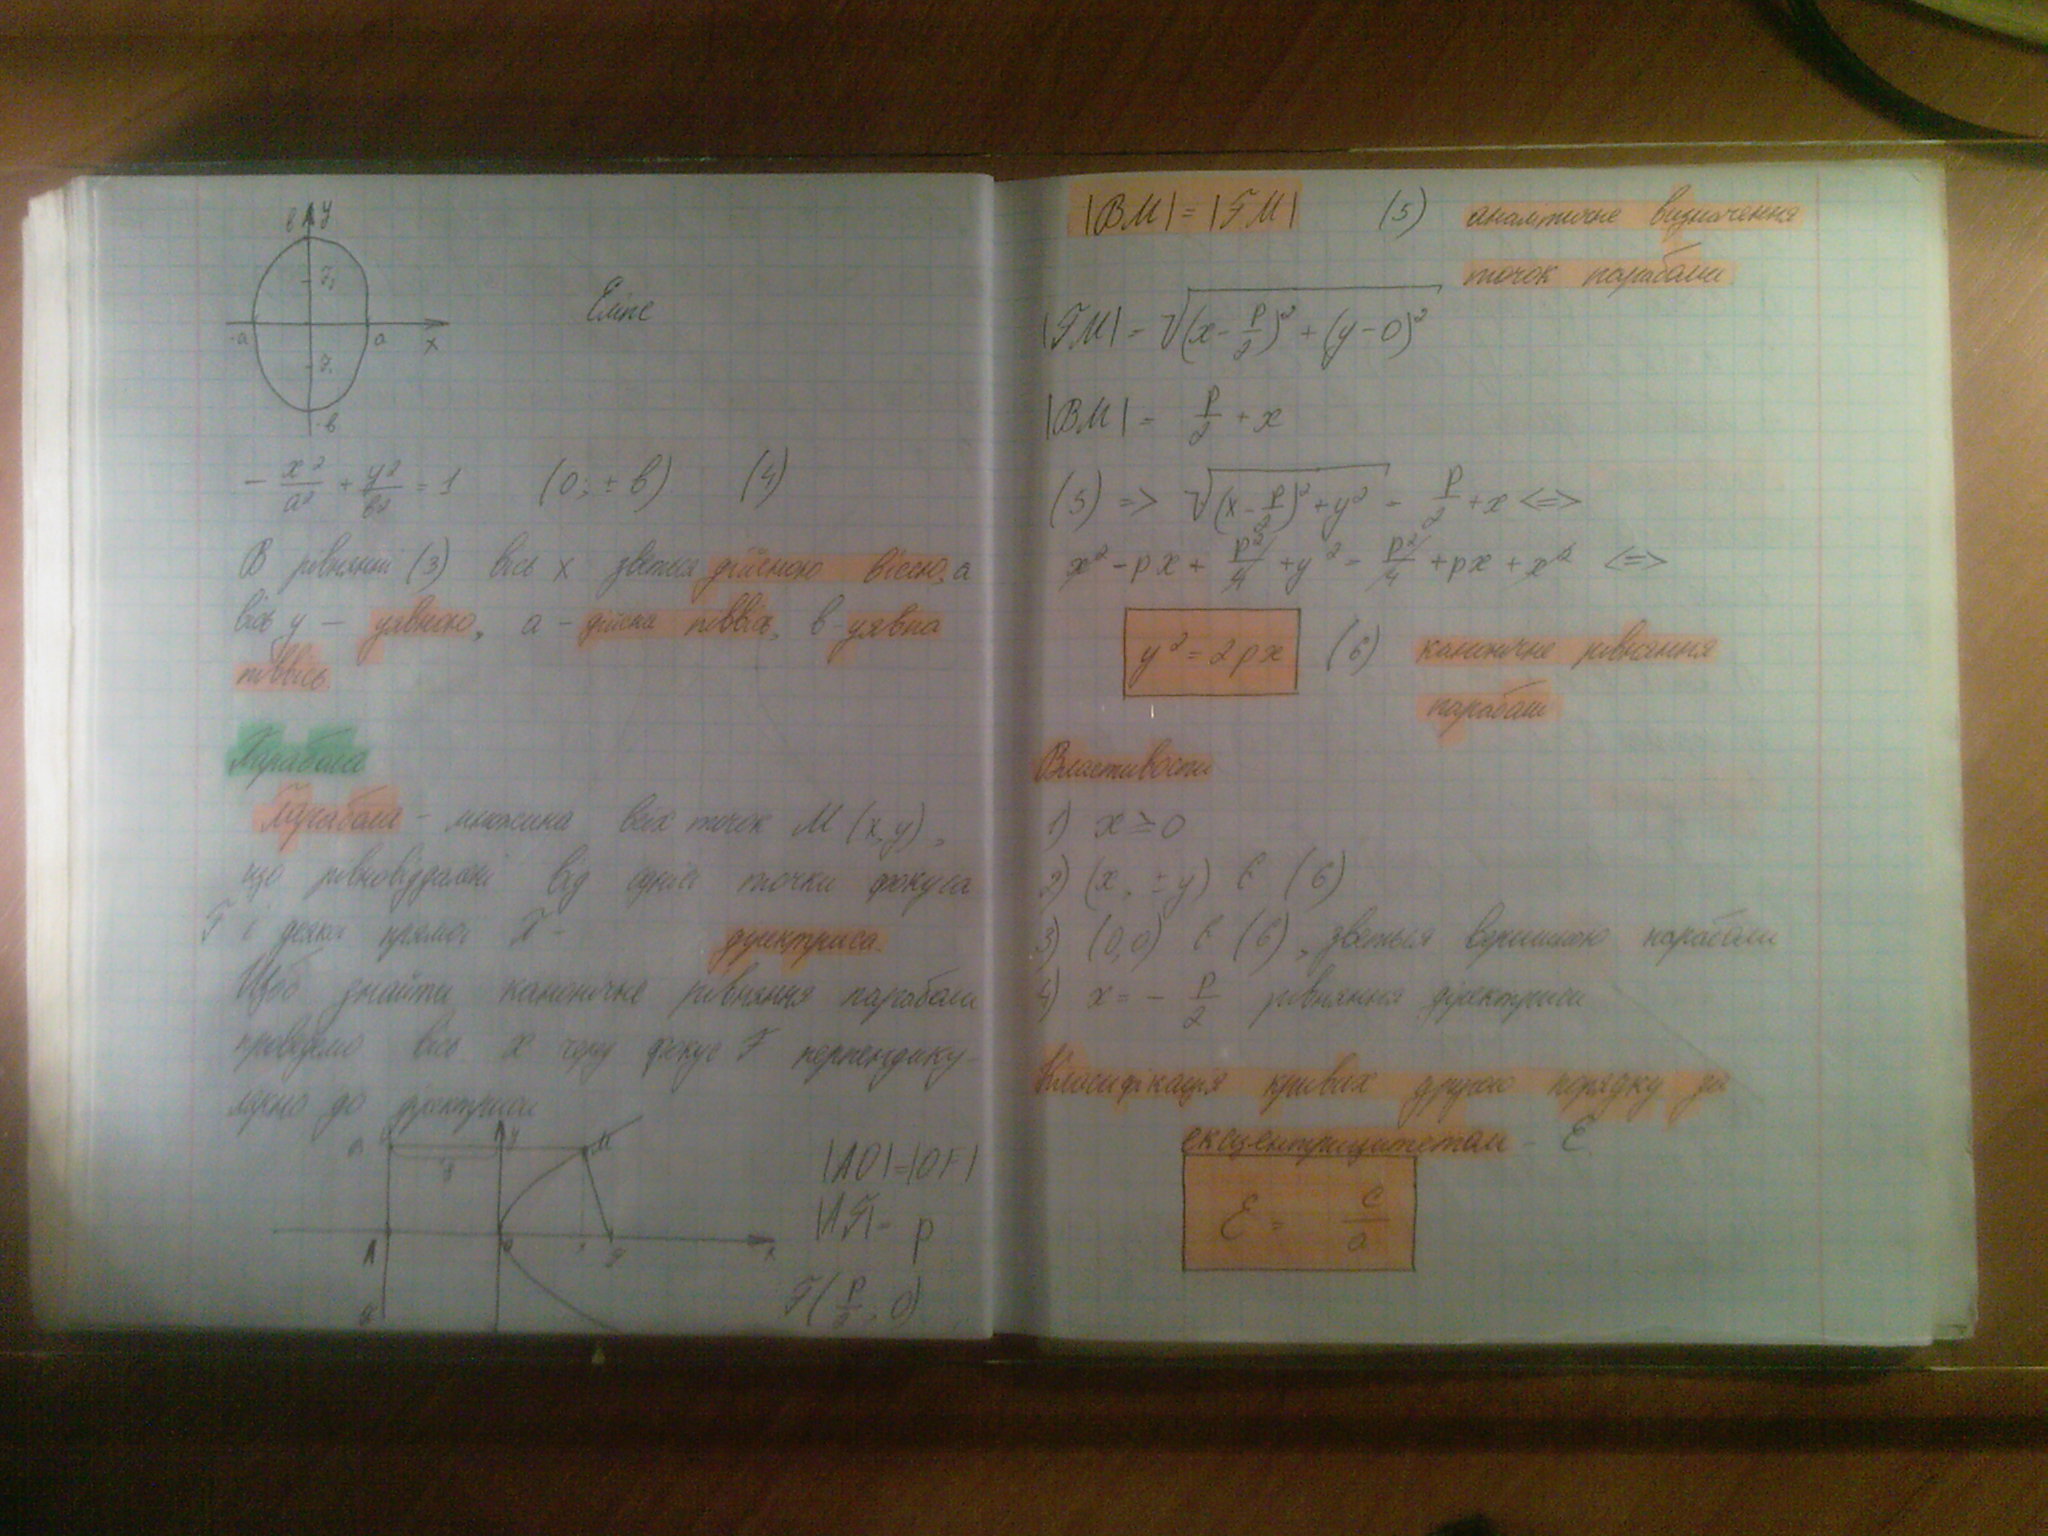 в y
F₂
-a a x
F₁
-в
Еліпс
- x²/a² + y²/в² = 1 (0; ± в) (4)
В рівнянні (3) вісь x зветься дійсною віссю, а
вісь y – уявною, a – дійсна піввісь, в – уявна
піввісь.
Парабола
Парабола – множина всіх точок M (x, y),
що рівновіддалені від однієї точки фокуса
F і деякої прямої – директриса.
Щоб знайти канонічне рівняння параболи
проведемо вісь x через фокус F перпендику-
лярно до директриси
y M
A O F x
|AO| = |OF|
|AF| = p
F (p/2; 0)
|BM| = |FM| (5) аналітичне визначення
точок параболи
|FM| = √(x - p/2)² + (y - 0)²
|BM| = p/2 + x
(5) => √(x - p/2)² + y² = p/2 + x <=>
x² - px + p²/4 + y² = p²/4 + px + x² <=>
y² = 2px (6) канонічне рівняння
параболи
Властивости
1) x ≥ 0
2) (x, ± y) є (6)
3) (0,0) є (6), зветься вершиною параболи
4) x = - p/2 рівняння директриси
Класифікація кривих другого порядку за
ексцентрицитетом – ε
ε = c/a